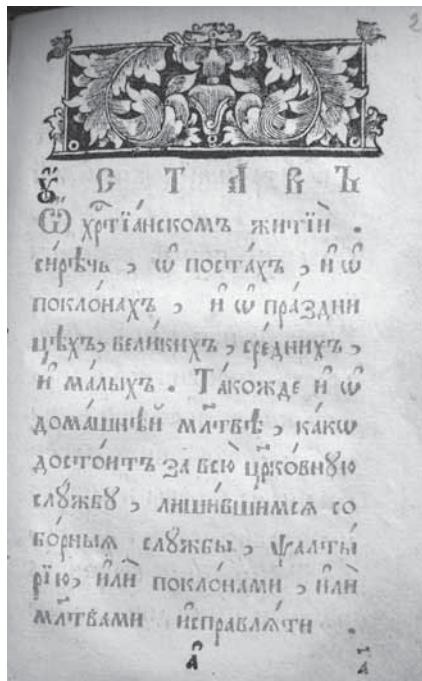 2
Ꙋ҆СТА́ВЪ
Ѡ҆ хрⷭ҇тїа́нскомъ житїѝ .
си́рѣчь , ѡ҆ поста́хъ , и҆ ѡ҆
покло́нахъ , и҆ ѡ҆ пра́здни
цѣхъ , вели́кихъ , сре́днихъ ,
и҆ ма́лыхъ . Та́кожде и҆ ѡ҆
дома́шнѣй мл҃твѣ , ка́кѡ
досто́итъ за всю̀ цр҃ко́внꙋю
слꙋ́жбꙋ , лиши́вшимсѧ со
бо́рныѧ слꙋ́жбы , ѱалты́
рїю , и҆лѝ покло́нами , и҆лѝ
мл҃твами и҆справлѧ́ти .
а҃